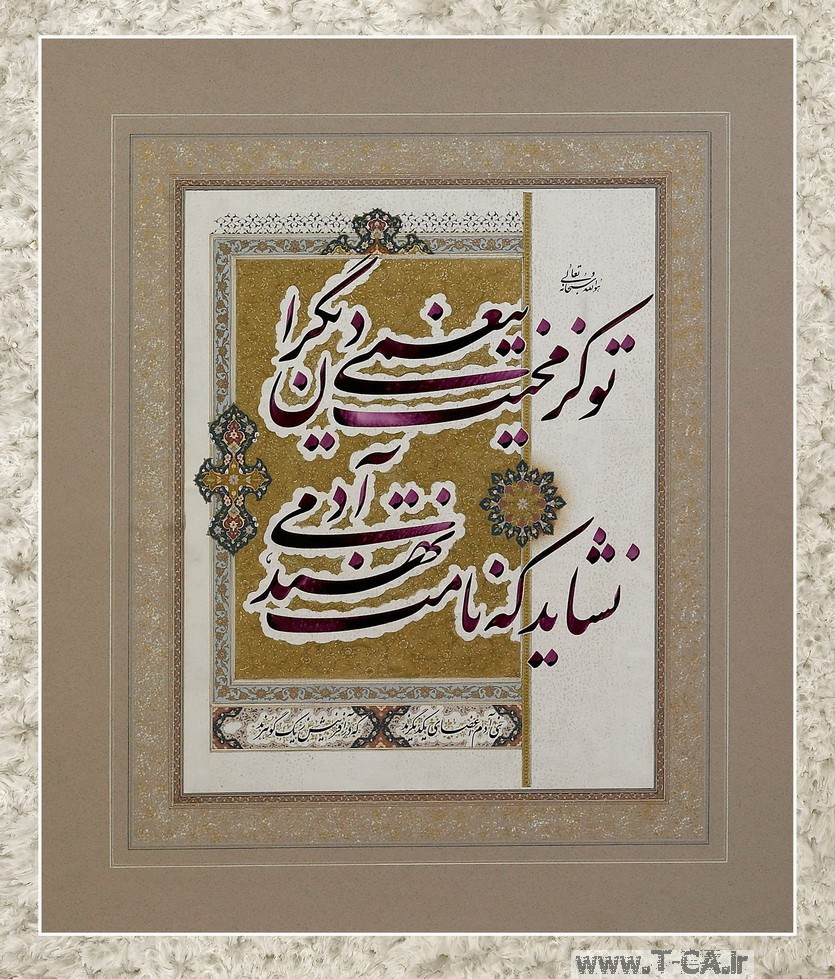 هو الله سبحانه و تعالی
تو کز محنت دیگران بیغمی
نشاید که نامت نهند آدمی
بنی آدم اعضای یکدیگرند که در آفرینش ز یک گوهرند
www.T-CA.ir